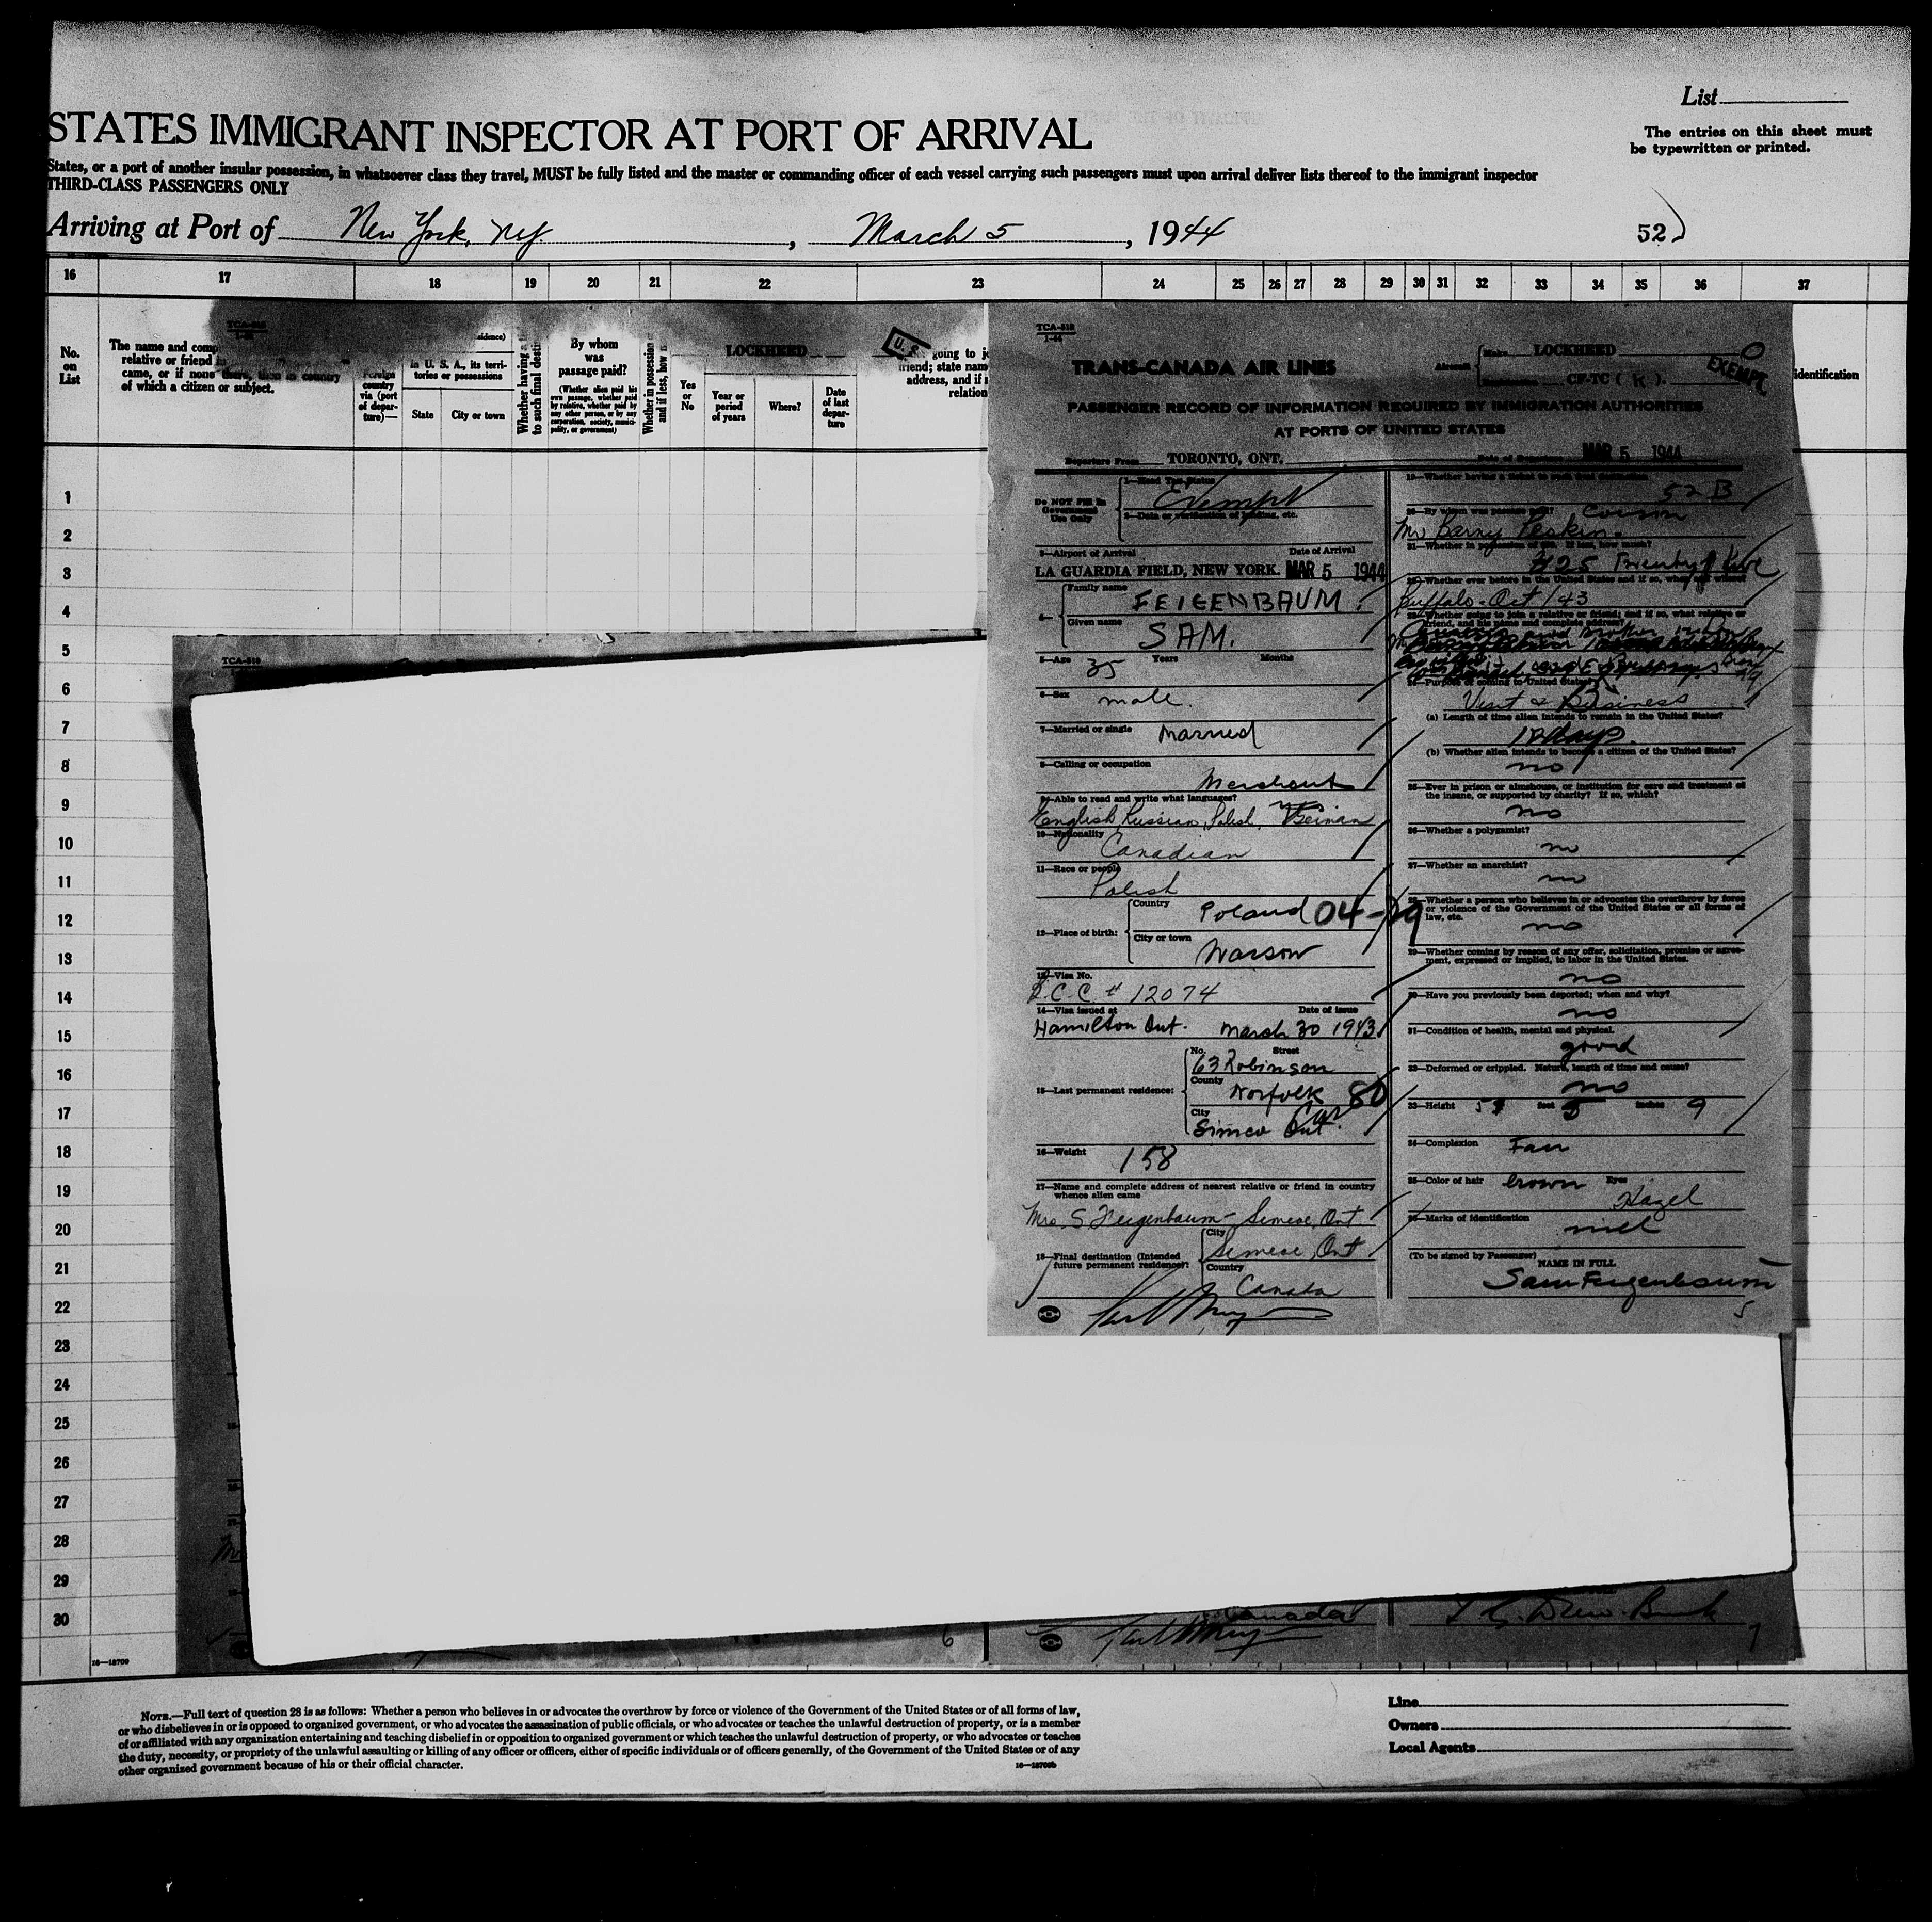 List
STATES IMMIGRANT INSPECTOR AT PORT OF ARRIVAL
The entries on this sheet must
be typewritten or printed.
States, or a port of another insular possession, in whatsoever class they travel, MUST be fully listed and the master or commanding officer of each vessel carrying such passengers must upon arrival deliver lists thereof to the immigrant inspector
THIRD-CLASS PASSENGERS ONLY
Arriving at Port of New York, NY. , March 5 , 1944
52
16 17 18 19 20 21 22 23 24 25 26 27 28 29 30 31 32 33 34 35 36 37
No.
on
List
The name and comp
relative or friend
came, or if none there, then in country
of which a citizen or subject.
TCA-818
Foreign
country
via (port
of depar-
ture)—
in U. S. A., its terri-
tories or possessions
State
City or town
Whether having a
to such final desti
By whom
was
passage paid?
(Whether alien paid his
own passage, whether paid
by relative, whether paid by
any other person, or by any
corporation, society, munici-
pality, or government)
Whether in possession
and if less, how
LOCKHEED
Yes
or
No
Year or
period
of years
Where?
Date
of last
depar-
ture
going to
friend; state nam
address, and if
relation
identification
TCA-818
1-44
TRANS-CANADA AIR LINES
Aircraft
Make LOCKHEED
CF-TC ( K ).
EXEMPT
PASSENGER RECORD OF INFORMATION REQUIRED BY IMMIGRATION AUTHORITIES
AT PORTS OF UNITED STATES
Departure From TORONTO, ONT.
Date of Departure MAR 5 1944
Do NOT Fill In
Government
Use Only
1—Head Tax Status
Exempt
3—Airport of Arrival
Date of Arrival
LA GUARDIA FIELD, NEW YORK. MAR 5 1944
4—
Family name
FEIGENBAUM.
Given name
SAM.
5—Age 35 Years Months
6—Sex male.
7—Married or single Married
8—Calling or occupation
Merchant
9—Able to read and write what languages?
English, Russian, Polish,
10—Nationality
Canadian
11—Race or people
Polish
12—Place of birth:
Country
Poland 04-29
City or town
Warsow
13—Visa No.
12074
14—Visa issued at
Date of Issue
Hamilton Ont. March 30 1943
15—Last permanent residence:
No. Street
63 Robinson
County
Norfolk 80
City
Simcoe Ont.
16—Weight 158
17—Name and complete address of nearest relative or friend in country
whence alien came
Mrs. S. Feigenbaum - Simcoe, Ont
18—Final destination (Intended
future permanent residence):
City
Simcoe, Ont
Country
Canada
19—Whether having a ticket to such final destination
52 B
20—By whom was passage paid?
Mr Barry Peskin.
21—Whether in possession of $50. If less, how much?
$25 Twenty five
22—Whether ever before in the United States and if so, when and where?
Buffalo - Oct/43
23—Whether going to join a relative or friend; and if so, what relative or
friend, and his name and complete address?
24—Purpose of coming to United States?
Visit & Business
(a) Length of time alien intends to remain in the United States?
days.
(b) Whether alien intends to become a citizen of the United States?
no
25—Ever in prison or almshouse, or institution for care and treatment of
the insane, or supported by charity? If so, which?
no
26—Whether a polygamist?
no
27—Whether an anarchist?
no
28—Whether a person who believes in or advocates the overthrow by force
or violence of the Government of the United States or all forms of
law, etc.
no
29—Whether coming by reason of any offer, solicitation, promise or agree-
ment, expressed or implied, to labor in the United States.
no
30—Have you previously been deported; when and why?
no
31—Condition of health, mental and physical.
good
32—Deformed or crippled. Nature, length of time and cause?
no
33—Height feet 5 inches 9
34—Complexion Fair
35—Color of hair brown Eyes
Hazel
36—Marks of identification
(To be signed by Passenger)
NAME IN FULL
Sam Feigenbaum
5
1
2
3
4
5
6
7
8
9
10
11
12
13
14
15
16
17
18
19
20
21
22
23
24
25
26
27
28
29
30
TCA-818
Canada
6
7
16—18700
NOTE.—Full text of question 28 is as follows: Whether a person who believes in or advocates the overthrow by force or violence of the Government of the United States or of all forms of law,
or who disbelieves in or is opposed to organized government, or who advocates the assassination of public officials, or who advocates or teaches the unlawful destruction of property, or is a member
of or affiliated with any organization entertaining and teaching disbelief in or opposition to organized government or which teaches the unlawful destruction of property, or who advocates or teaches
the duty, necessity, or propriety of the unlawful assaulting or killing of any officer or officers, either of specific individuals or of officers generally, of the Government of the United States or of any
other organized government because of his or their official character.
16—18700b
Line
Owners
Local Agents